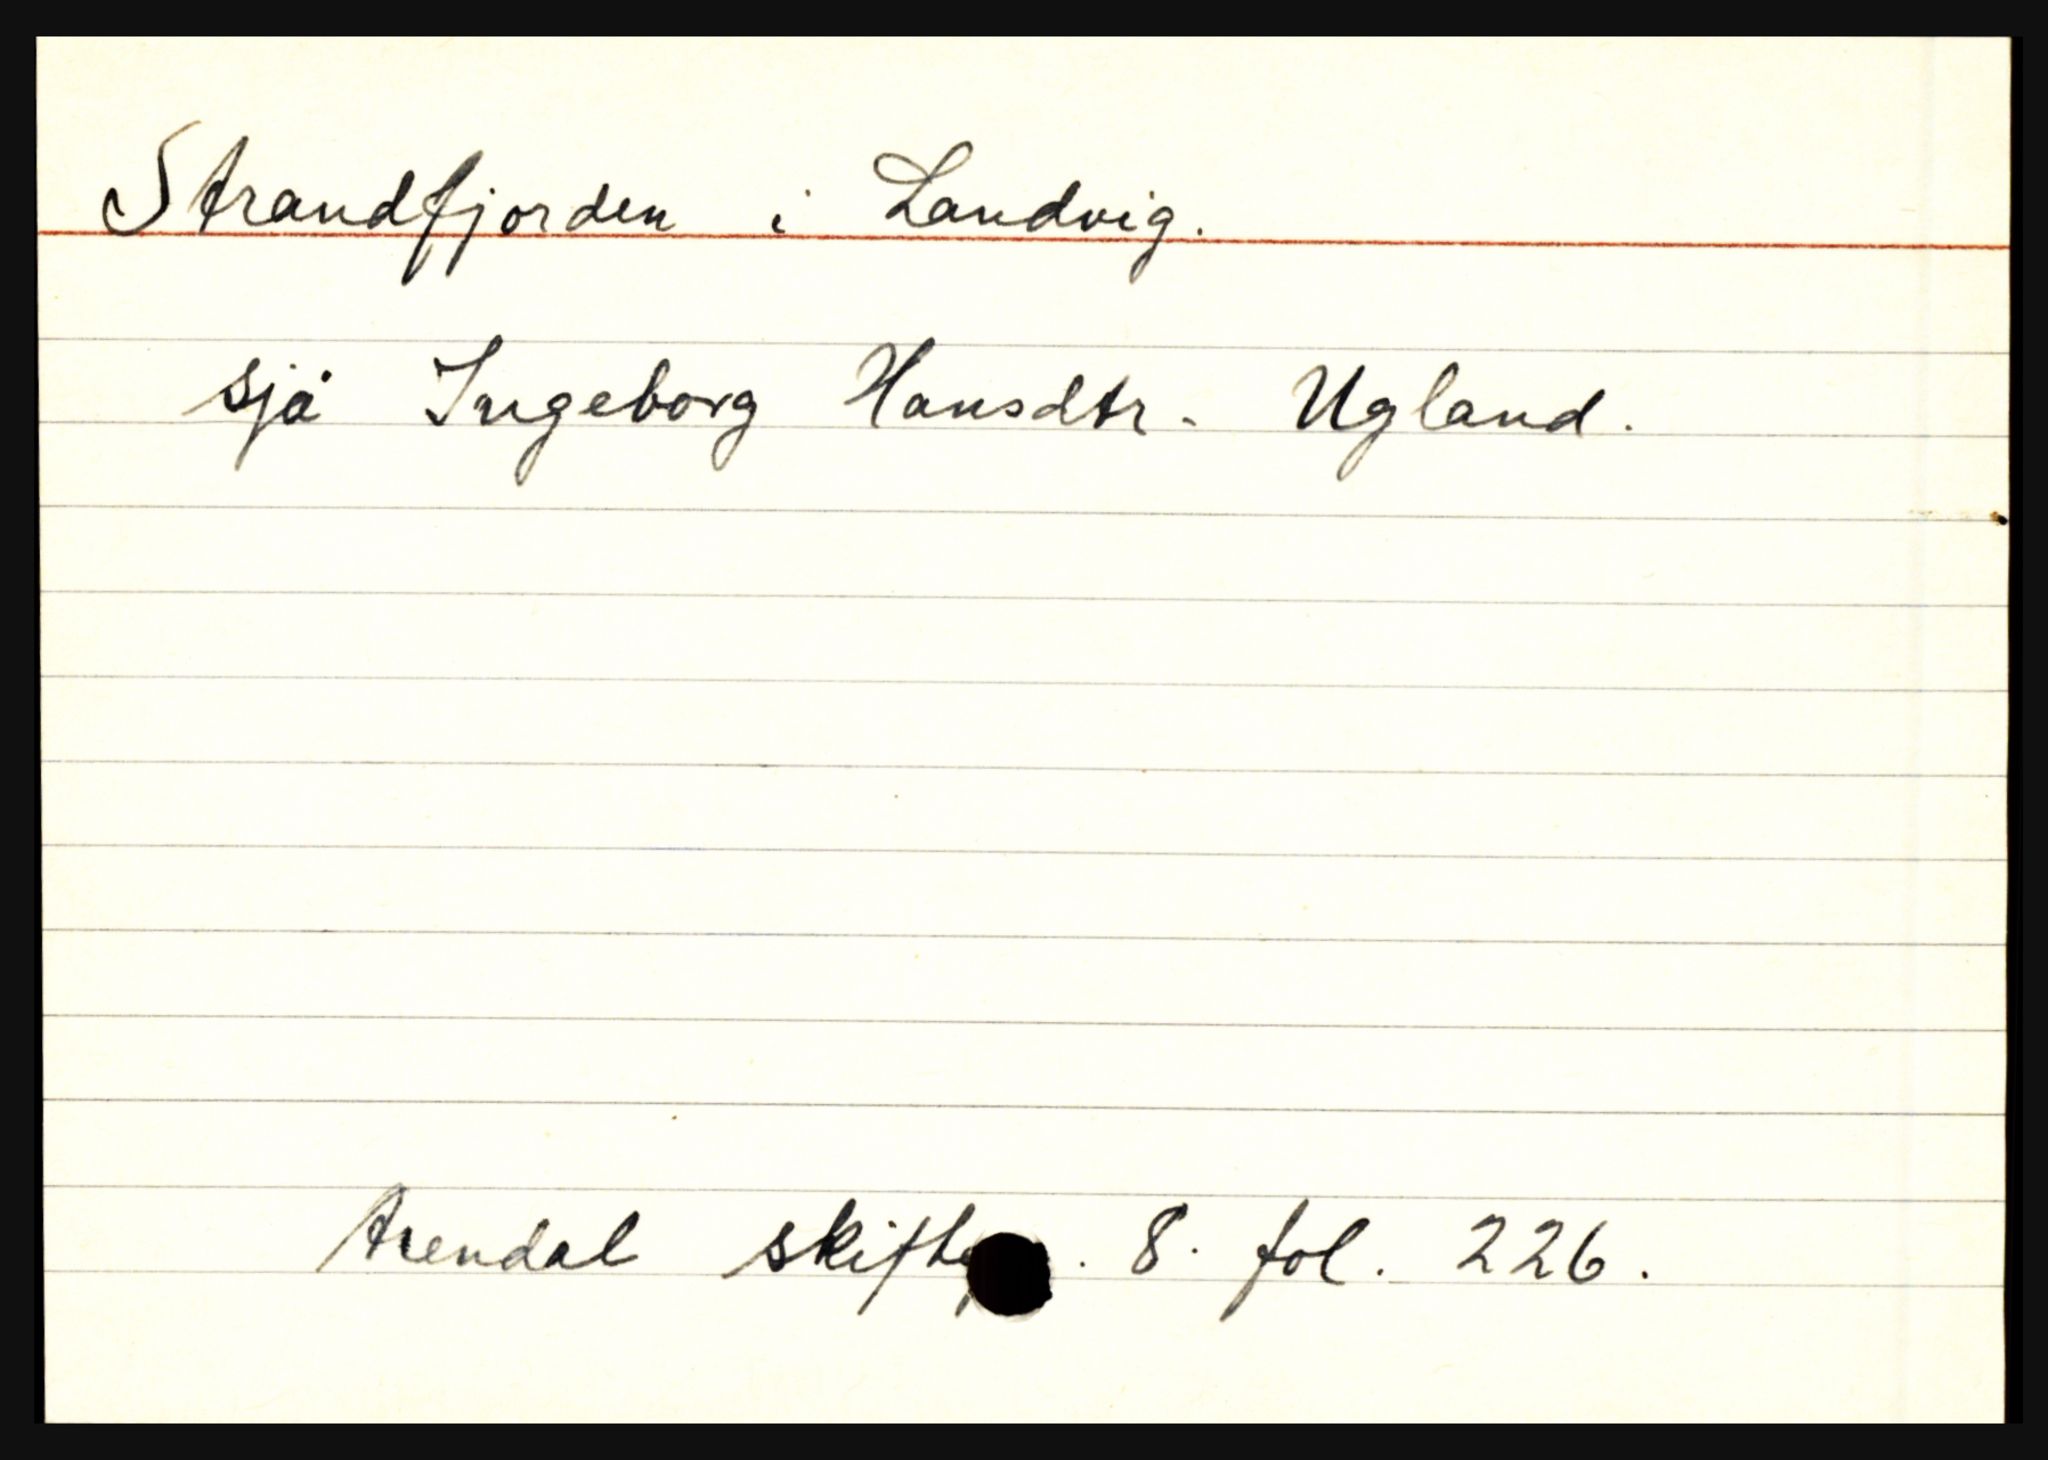 Strandfjorden i Landvig.
sjå Ingeborg Hansdtr. Ugland.
Arendal 8. fol. 226.